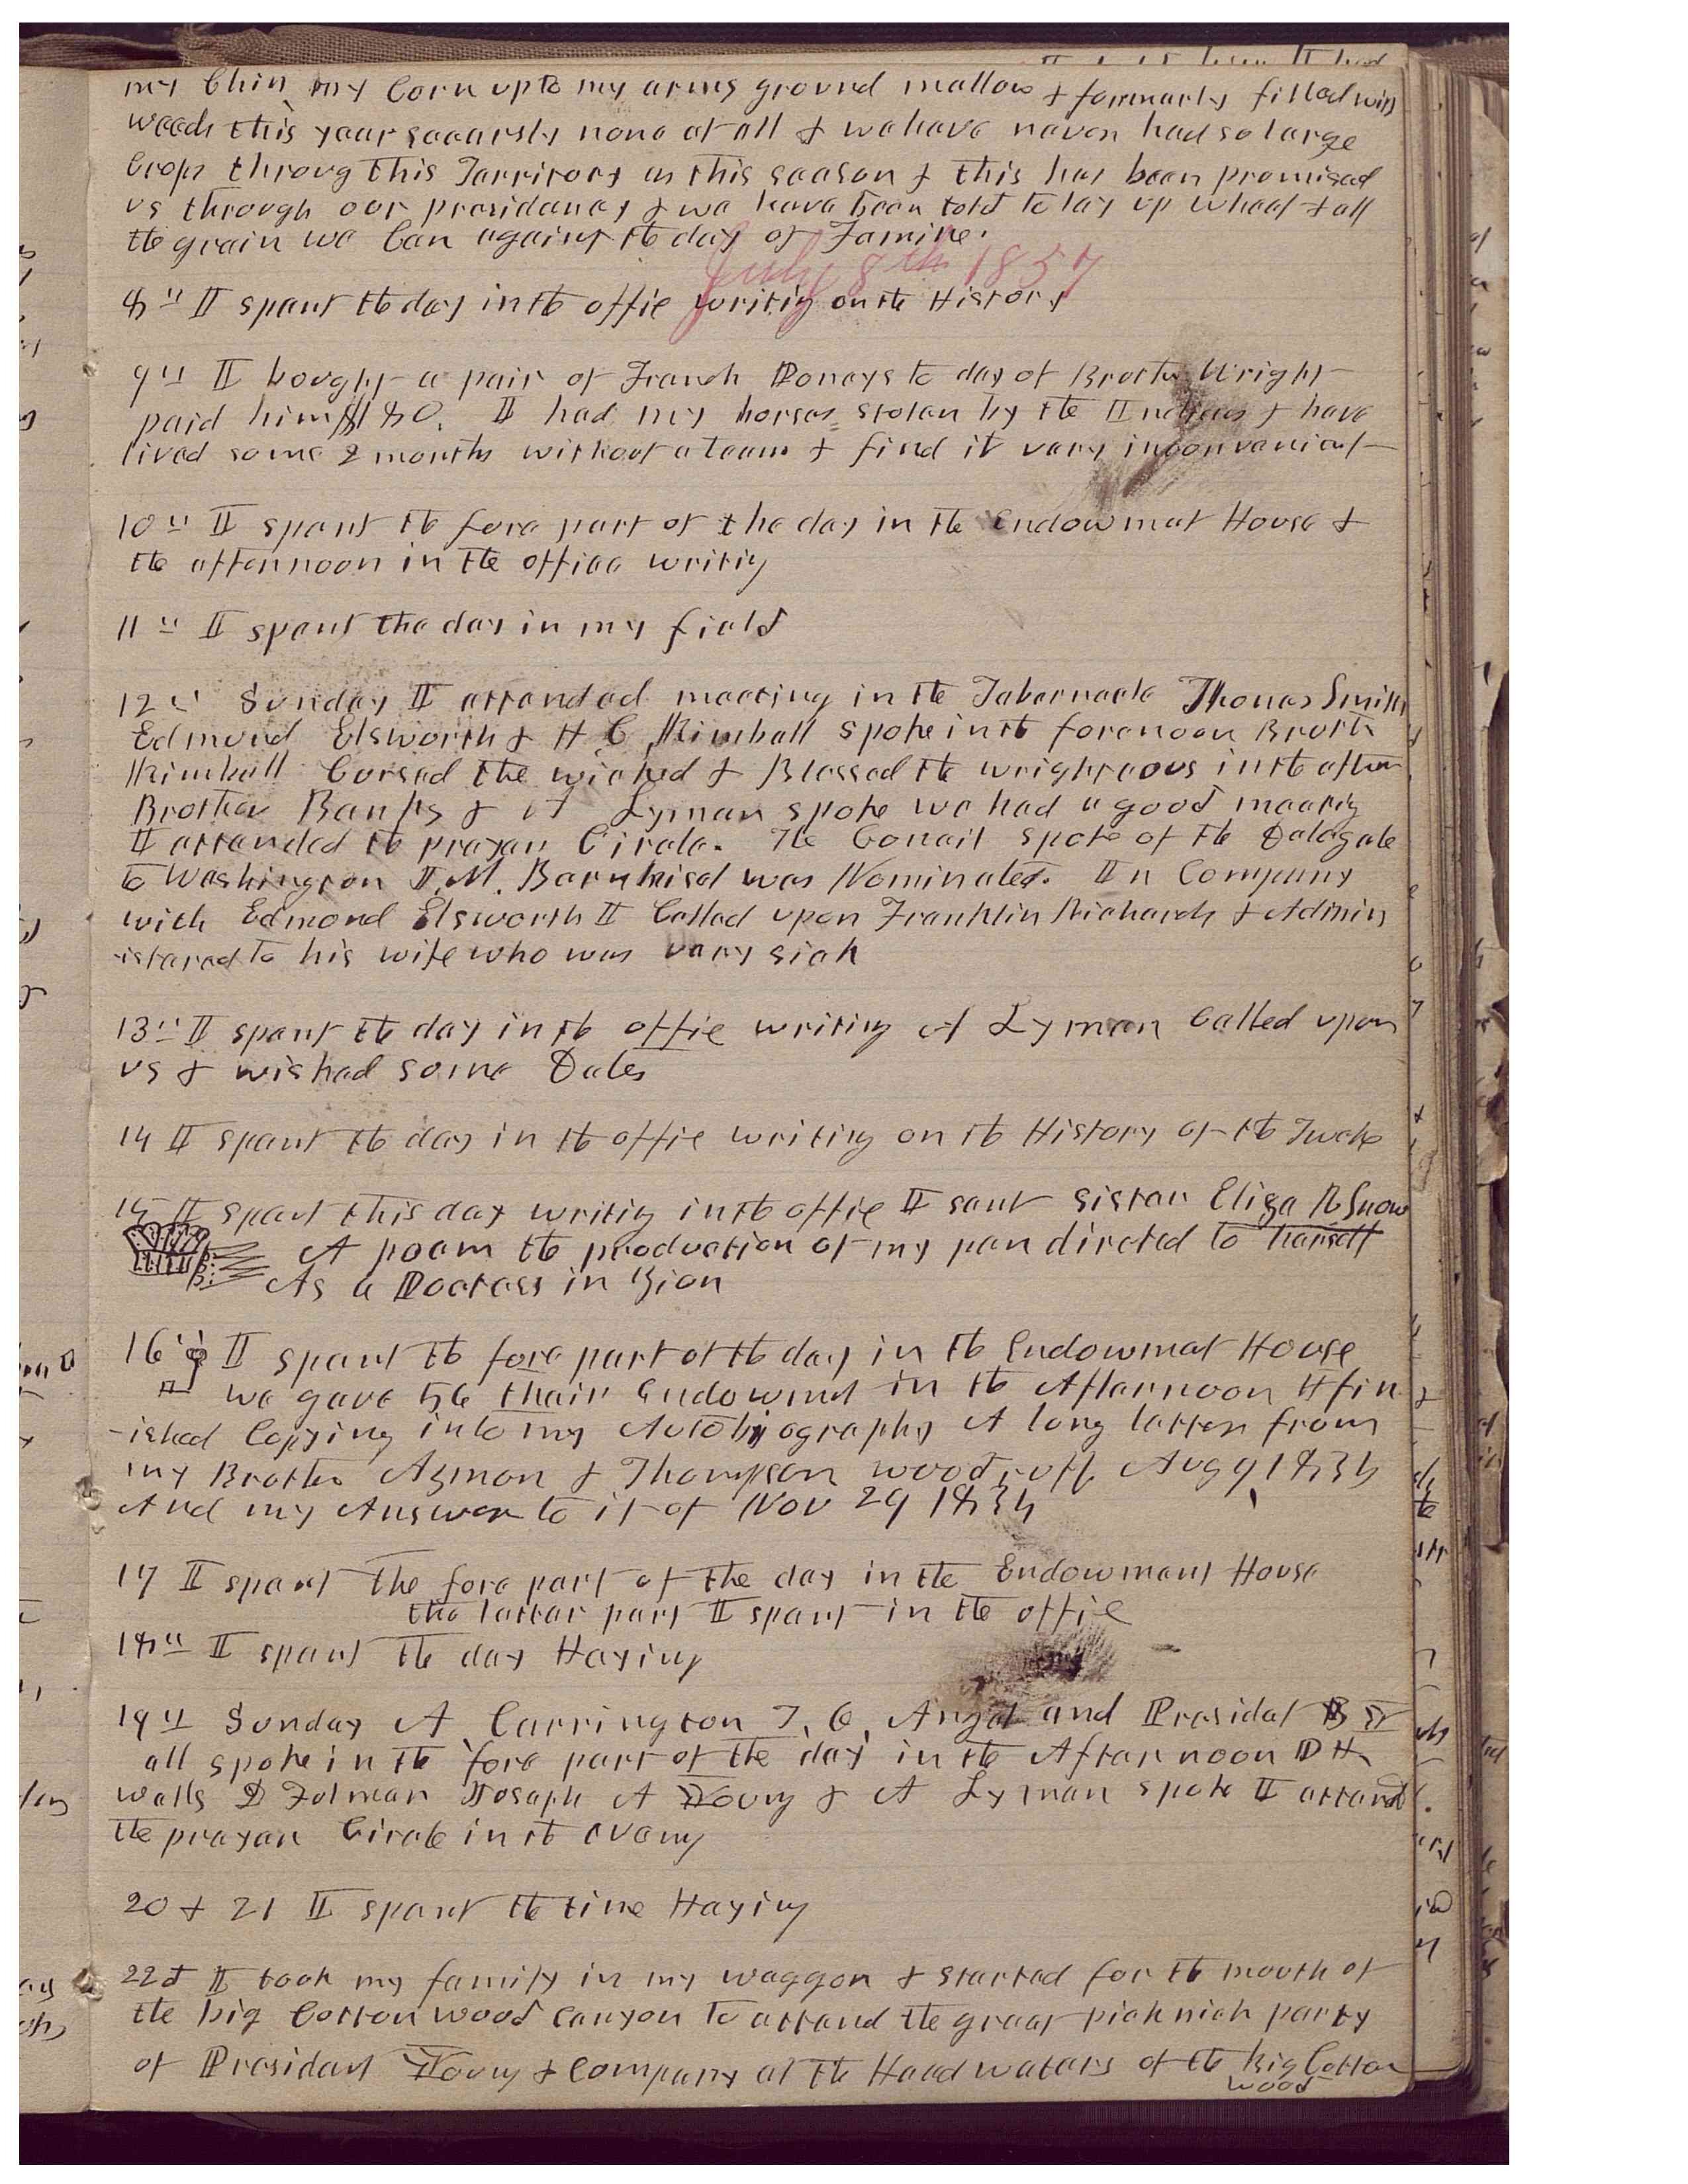 my Chin my Corn up to my arms ground mallow & formarly filled with
weeds this year scaarsly none at all & we have never had so large
Crops throug this Territory as this season & this has been promised
us through our presidency & we have been told to lay up wheat & all
the grain we Can against the day of Famine.
July 8th 1857
8" I spent the day in the offie writing on the History
9" I bought a pair of French Poneys to day of Brother Wright
paid him $180. I had my horses stolen by the Indians & have
lived some 2 months without a team & find it very inconvenient
10" I spent the fore part of the day in the Endowmet House &
the afternoon in the office writing
11" I spent the day in my field
12" Sunday I attended meeting in the Tabernacle Thomas Smith
Edmond Elsworth & H C Kimball spoke in the forenoon Brother
Kimball Cursed the wicked & Blessed the wrighteous in the after
Brother Banks & A Lyman spoke we had a good meeting
I attended the prayer Circle. The Concil spoke of the Delegate
to Washington J. M. Barnhisel was Nominated. In Company
with Edmond Elsworth I Called upon Franklin Richards & Admin
istered to his wife who was very sick
13" I spent the day in the offie writing A Lyman Called upon
us & wished some Dates
14 I spent the day in the offie writing on the History of the Twelve
15 I spent this day writing in the offie I sent Sister Eliza R Snow
A poem the production of my pen directed to herself
As a Poetess in Zion
16" I spent the fore part of the day in the Endowmet House
we gave 56 their Endowmet in the Afternoon I fin
-ished Copying into my Autobiography A long letter from
my Brother Azmon & Thompson woodruff Aug 9 1834
And my Answer to it of Nov 29 1834
17 I spent the fore part of the day in the Endowment House
the latter part I spent in the offie
18" I spent the day Haying
19" Sunday A Carrington T. O. Angel and Presidet B Y
all spoke in the fore part of the day in the Afternoon D H
Wells D Fulmer Joseph A Young & A Lyman spoke I attend
the prayer Circle in the eveng
20 & 21 I spent the time Haying
22d I took my family in my waggon & started for the mouth of
the big Cotton wood Canyon to attend the great pick nick party
of President Young & Company at the Head waters of the big Cotton
wood